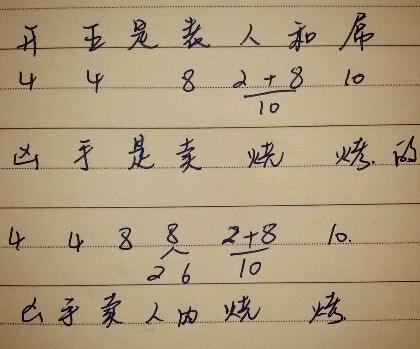 开 王 是 表 人 和
4 4 8 2+8 10
10
凶 手 是 卖 烧 烤 的
4 4 8 8 2+8 10.
2 6 10
凶 手 卖 人 肉 烧 烤